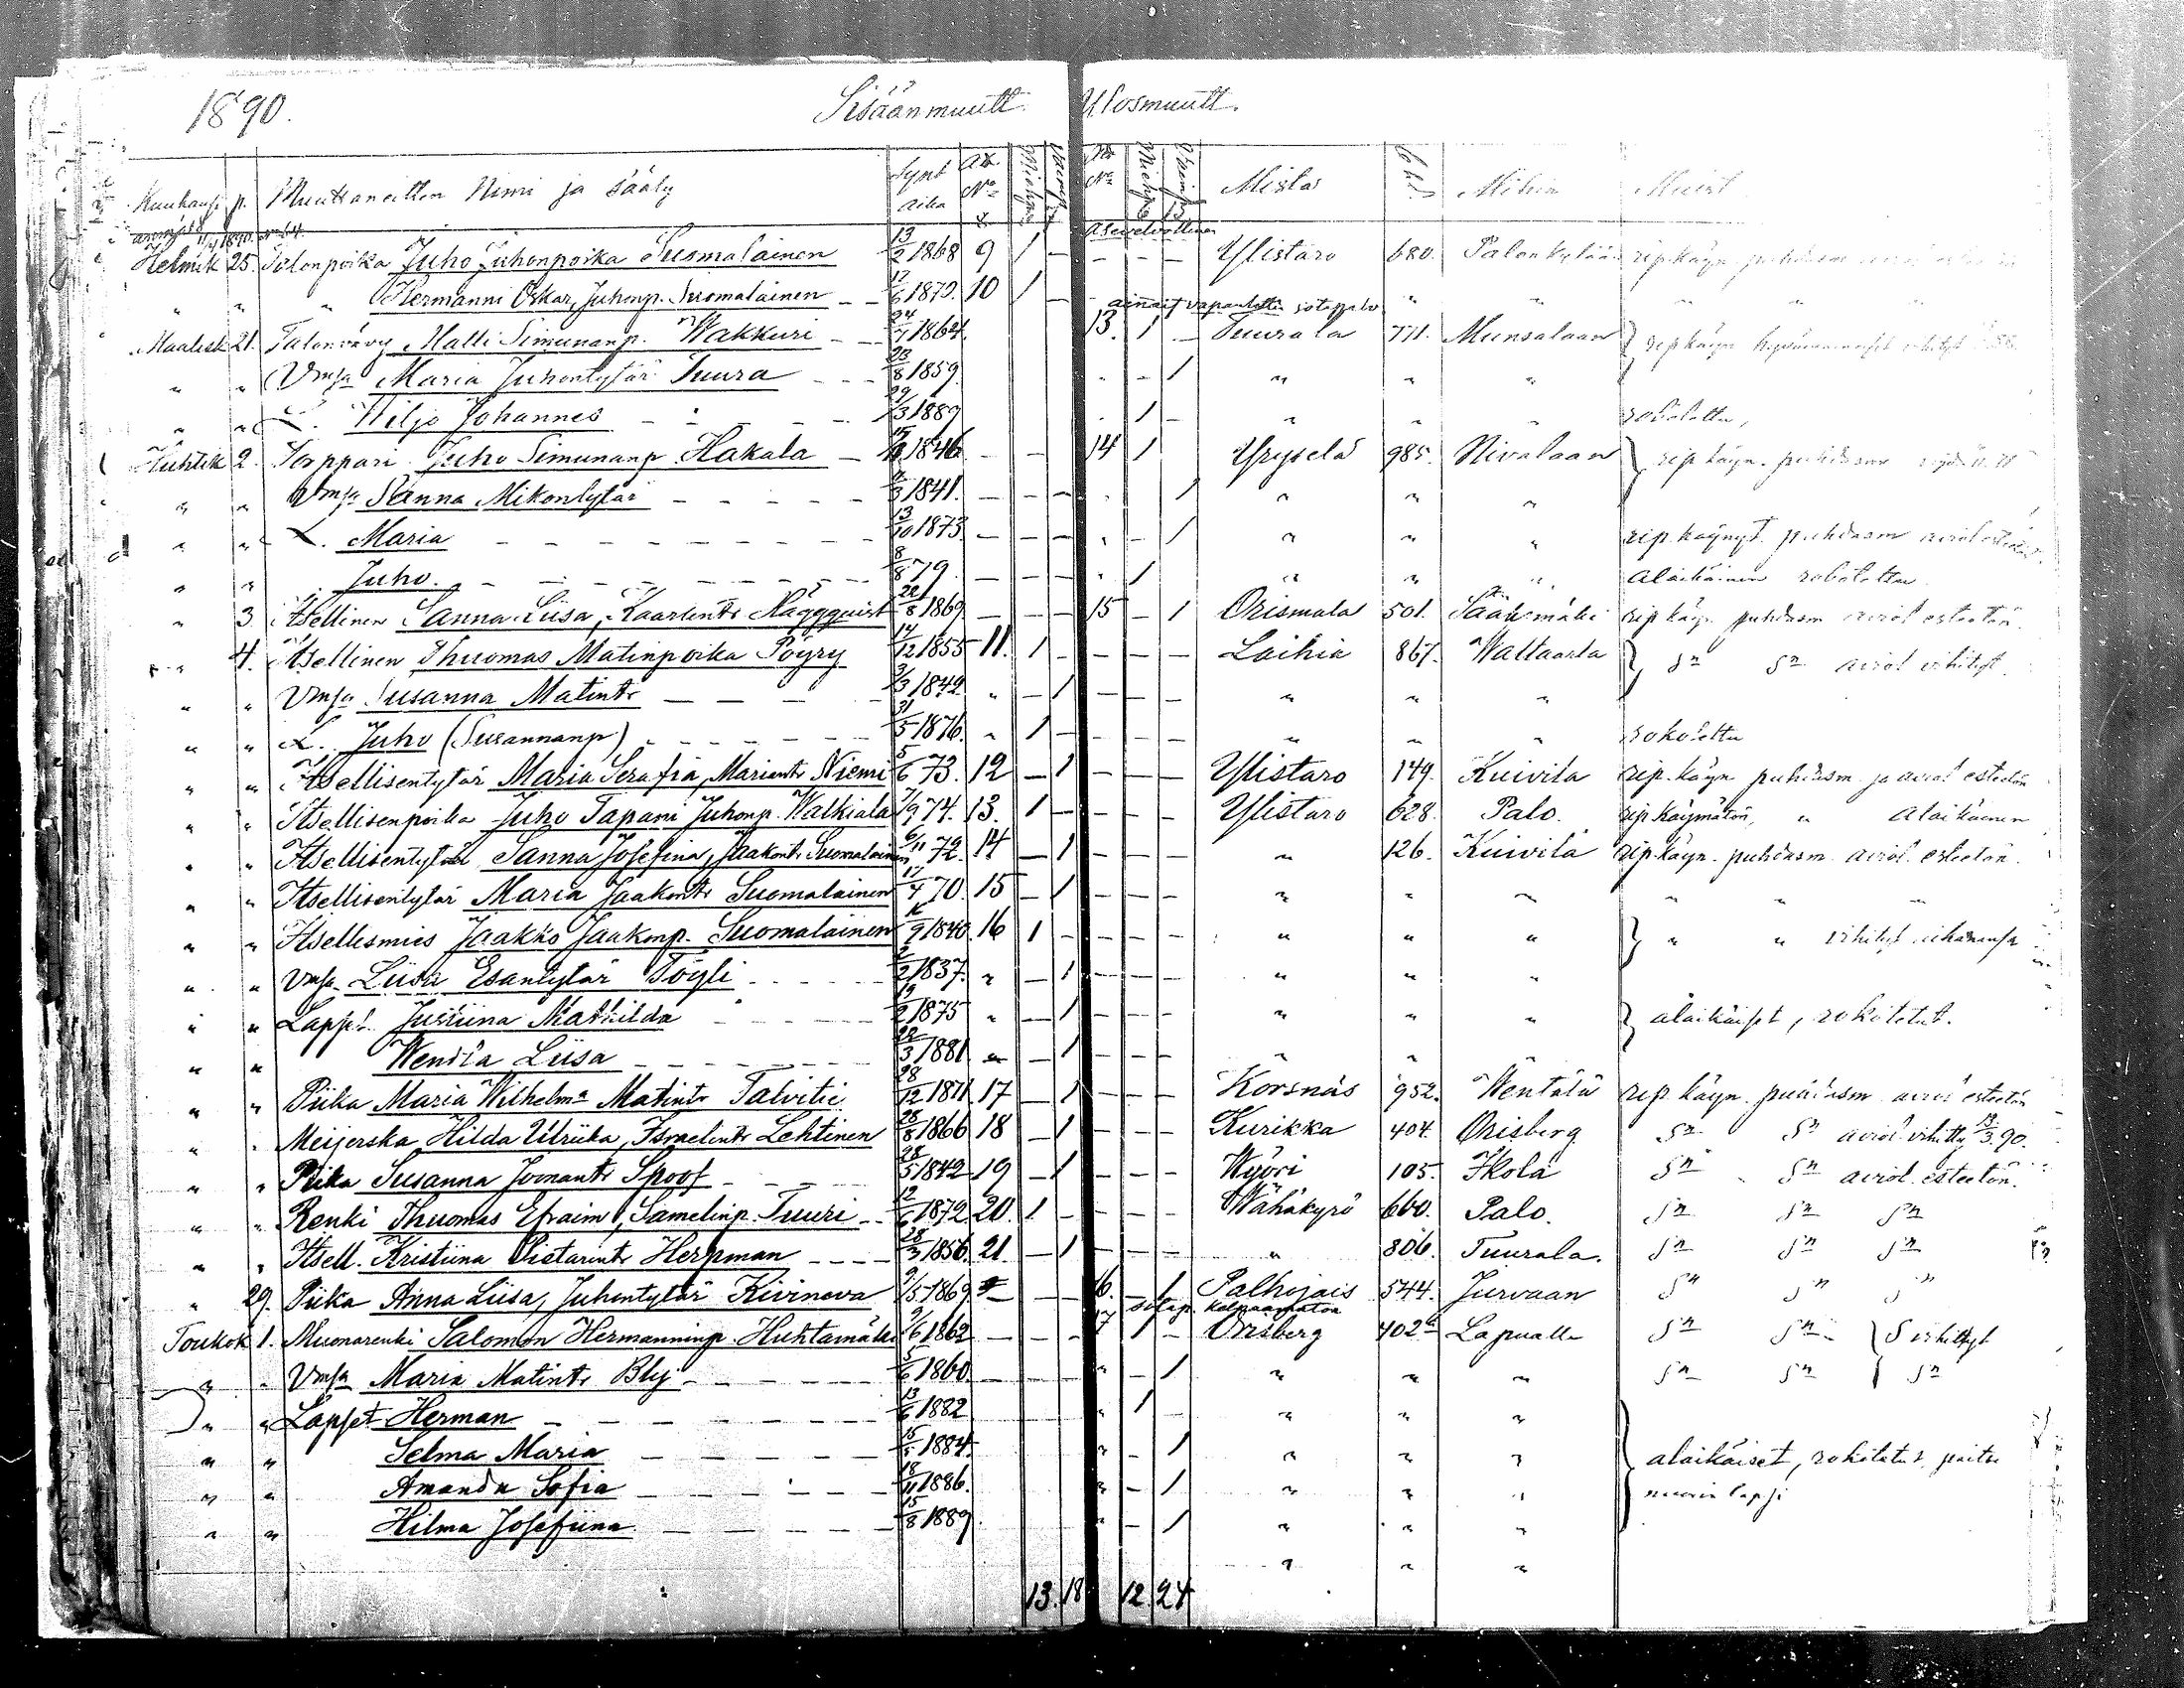 1890. Sisäänmuutt. Ulosmuutt.
Kuukausi p. Muuttaneitten Nimi ja Sääty Synt aika No Miehp. Vaimop. No Miehp. Vaimop. Mistä Mihin Muist
Asevelvollinen
Helmik 25. Talonpoika Juho Juhonpoika Suomalainen 13/2 1868 9 1 – – – – Ylistaro 680. Palonkylään rip. käyn. puhdasm
" " " Hermanni Oskar, Juhonp. Suomalainen 17/6 1870. 10 1 – " " " "
ainaist vapautettu sotapalv
Maalisk 21. Talonvävy Matti Simunanp. Wakkuri 24/7 1864. 13. 1 – Tuurala 771. Munsalaan rip käyn
" " Vmsa Maria Juhontytär Tuura 23/8 1859. " – 1 " " "
" " L. Wiljo Johannes 29/3 1889 . 1 – " " " rokotettu,
Huhtik 2. Torppari Juho Simunanp Hakala 1846 – – 14 1 Yryselä 985. Nivalaan rip käyn. puhdasm
" " Vmsa Sanna Mikontytär 3 1841. – – – . 1 " " "
" " L. Maria 13/10 1873 – – – . – 1 " " " rip. käynyt puhdasm aviol esteetön
" " Juho. 8/8 79. – – – . 1 " " " Alaikäinen rokotettu
" 3. Itsellinen Sanna Liisa, Kaarlentr Näggquist 22/8 1869 – – – 15 – 1 Orismala 501. Sääksmäki rip käyn puhdasm aviol esteetön.
" 4. Itsellinen Thuomas Matinpoika Pöyry 14/12 1855 11. 1 – – – – Laihia 867. Waltaarla Sn Sn aviol vihityt.
" " Vmsa Susanna Matintr 3/3 1842 " – 1 – – – " " "
" " L. Juho (Susannanp) 31/5 1876. " 1 – " " " rokotettu
" " Itsellisentytär Maria Serafia, Mariantr Niemi 5/6 73. 12 – 1 – – – Ylistaro 149. Kuivila rip. käyn puhdasm ja aviol esteetön
" " Itsellisenpoika Juho Tapani Juhonp. Walkiala 7/9 74. 13. 1 – – – – Ylistaro 628. Palo. rip käymätön, " Alaikäinen
" " Itsellisentytär Sanna Josefina, Jaakontr Suomalainen 6/11 72. 14 – 1 – – – " 126. Kuivilä rip. käyn. puhdasm aviol. esteetön.
" " Itsellisentytär Maria Jaakontr Suomalainen 17/4 70. 15 – 1 – – – " " " " " "
" " Itsellismies Jaakko Jaakonp. Suomalainen 9 1840. 16 1 – – – – " " " " " vihityt
" " Vmsa Liisa Esantytär Töyli 2/2 1837. " – 1 – – – " " "
" " Lapset Justiina Mathilda 19/2 1875 " – 1 – – – " " " alaikäiset, rokotetut.
" " Wendla Liisa 22/3 1881 " – 1 – – – " " "
" " Piika Maria Wilhelma Matintr Talvitie 28/12 1871 17 – 1 – – – Korsnäs 952. Wentälä rip. käyn. puhdasm aviol esteetön
" " Meijerska Hilda Ulriika, Israelintr Lehtinen 28/8 1866 18 – 1 – – – Kurikka 404. Orisberg Sn Sn aviol vihitty 13/3 90.
" " Piika Susanna Joonantr Spoof 28/5 1842 19 – 1 – – – Wyöri 105. Ikola Sn Sn aviol. esteetön.
" " Renki Thuomas Efraim, Samelinp. Tuuri 12/6 1872 20. 1 – – – – Wähäkyrö 660. Palo. Sn Sn Sn
" " Itsell. Kristiina Pietarintr Herpman 28/3 1856. 21. – 1 – – – " 806. Tuurala. Sn Sn Sn
" 29. Piika Anna Liisa, Juhontytär Kivineva 9/5 1869. – – 16. – 1 Palhojais 544. Jurvaan Sn Sn Sn
sotap. kelpaamaton
Toukok 1. Muonarenki Salomon Hermanninp. Huhtamäki 9/6 1862 – – – 17 1 – Orisberg 402 Lapualle Sn Sn vihityt
" " Vmsa Maria Matintr Bly 5/6 1860. – " – 1 " " " Sn Sn Sn
" " Lapset Herman 13/6 1882 " 1 – " " "
" " Selma Maria 15/5 1884. " – 1 " " " alaikäiset, rokotetut paitse
" " Amanda Sofia 18/11 1886. " – 1 " " " nuorin lapsi
" " Hilma Josefiina 15/8 1889. " – 1 " " "
" " "
13. 18 12. 24